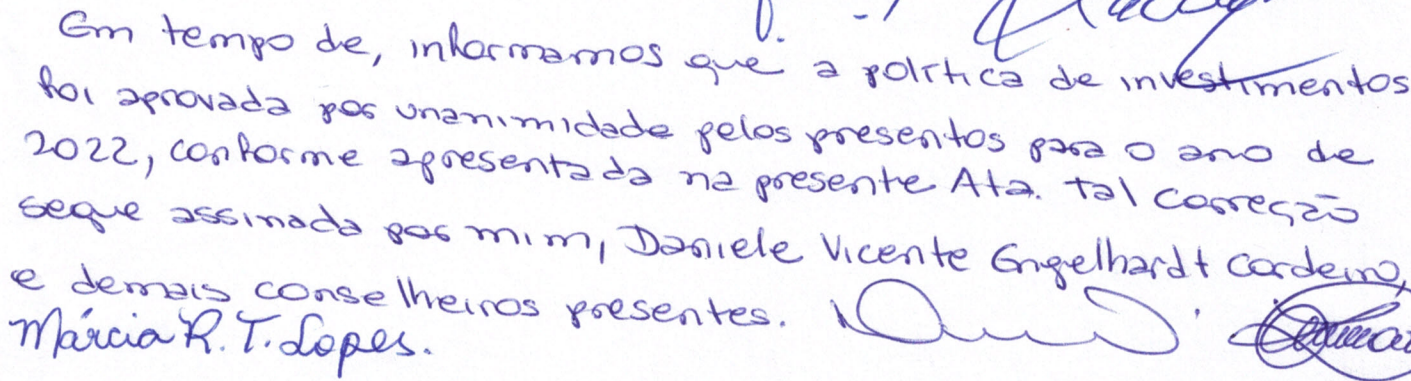 Em tempo de, informamos que a política de investimentos
foi aprovada por unanimidade pelos presentes para o ano de
2022, conforme apresentada na presente Ata. Tal correção
segue assinada por mim, Daniele Vicente Engelhardt Cordeiro,
e demais conselheiros presentes.
Márcia R. T. Lopes.